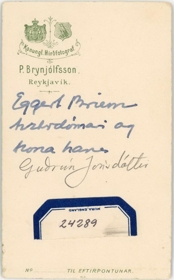 Kongegl. Hoffotograf
P. Brynjólfsson.
Reykjavík.
Eggert Briem
og
kona hans
Guðrún Jónsdóttir
24289
No
TIL EFTIRPÖNTUNAR.